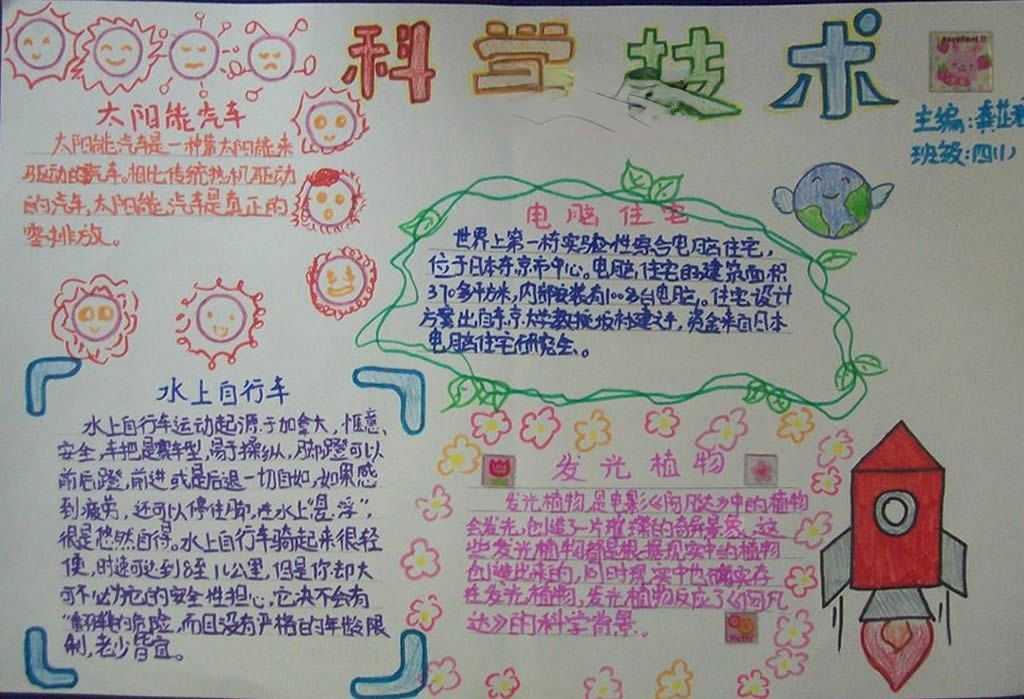 科学技术
excellent!!
主编:龚芷
班级:四(1)
太阳能汽车
太阳能汽车是一种靠太阳能来
驱动的汽车。相比传统热机驱动
的汽车,太阳能汽车是真正的
零排放。
电脑住宅
世界上第一栋实验性综合电脑住宅,
位于日本东京市中心。电脑住宅的建筑面积
370多平方米,内部安装有100多台电脑。住宅设计
方案出自东京大学教授坂村建之手,资金来自日本
电脑住宅研究会。
水上自行车
水上自行车运动起源于加拿大,惬意、
安全,车把是赛车型,易于操纵,脚蹬可以
前后蹬,前进或是后退一切自如,如果感
到疲劳,还可以停住脚,在水上"悬浮",
很是悠然自得。水上自行车骑起来很轻
便,时速可达到8至16公里,但是你却大
可不必为它的安全性担心,它决不会有
"翻船"的危险,而且没有严格的年龄限
制,老少皆宜。
发光植物
发光植物是电影《阿凡达》中的植物
会发光,创造了一片璀璨的奇异景象,这
些发光植物都是根据现实中的植物
创造出来的,同时现实中也确实存
在发光植物,发光植物反应了《阿凡
达》的科学背景。